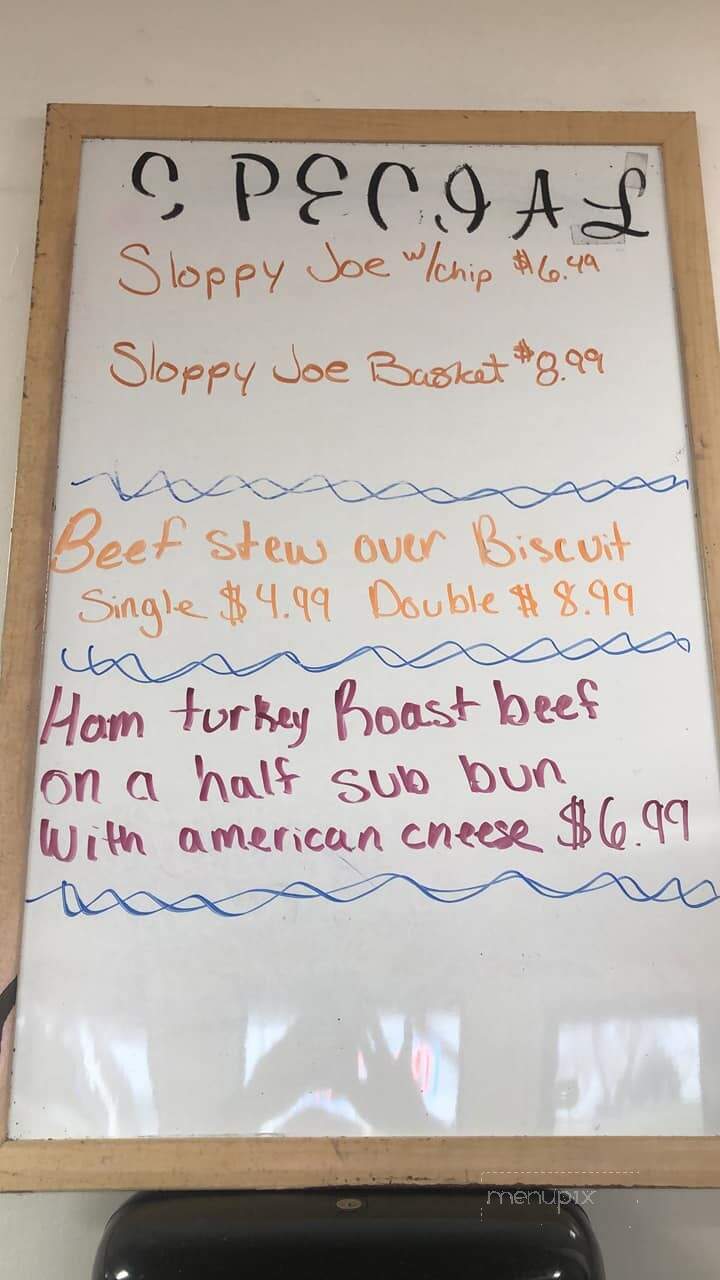 SPECIAL
Sloppy Joe w/chip $6.49
Sloppy Joe Basket $8.99
Beef stew over Biscuit
Single $4.99 Double $8.99
Ham turkey Roast beef
on a half sub bun
With american cheese $6.99
menupix